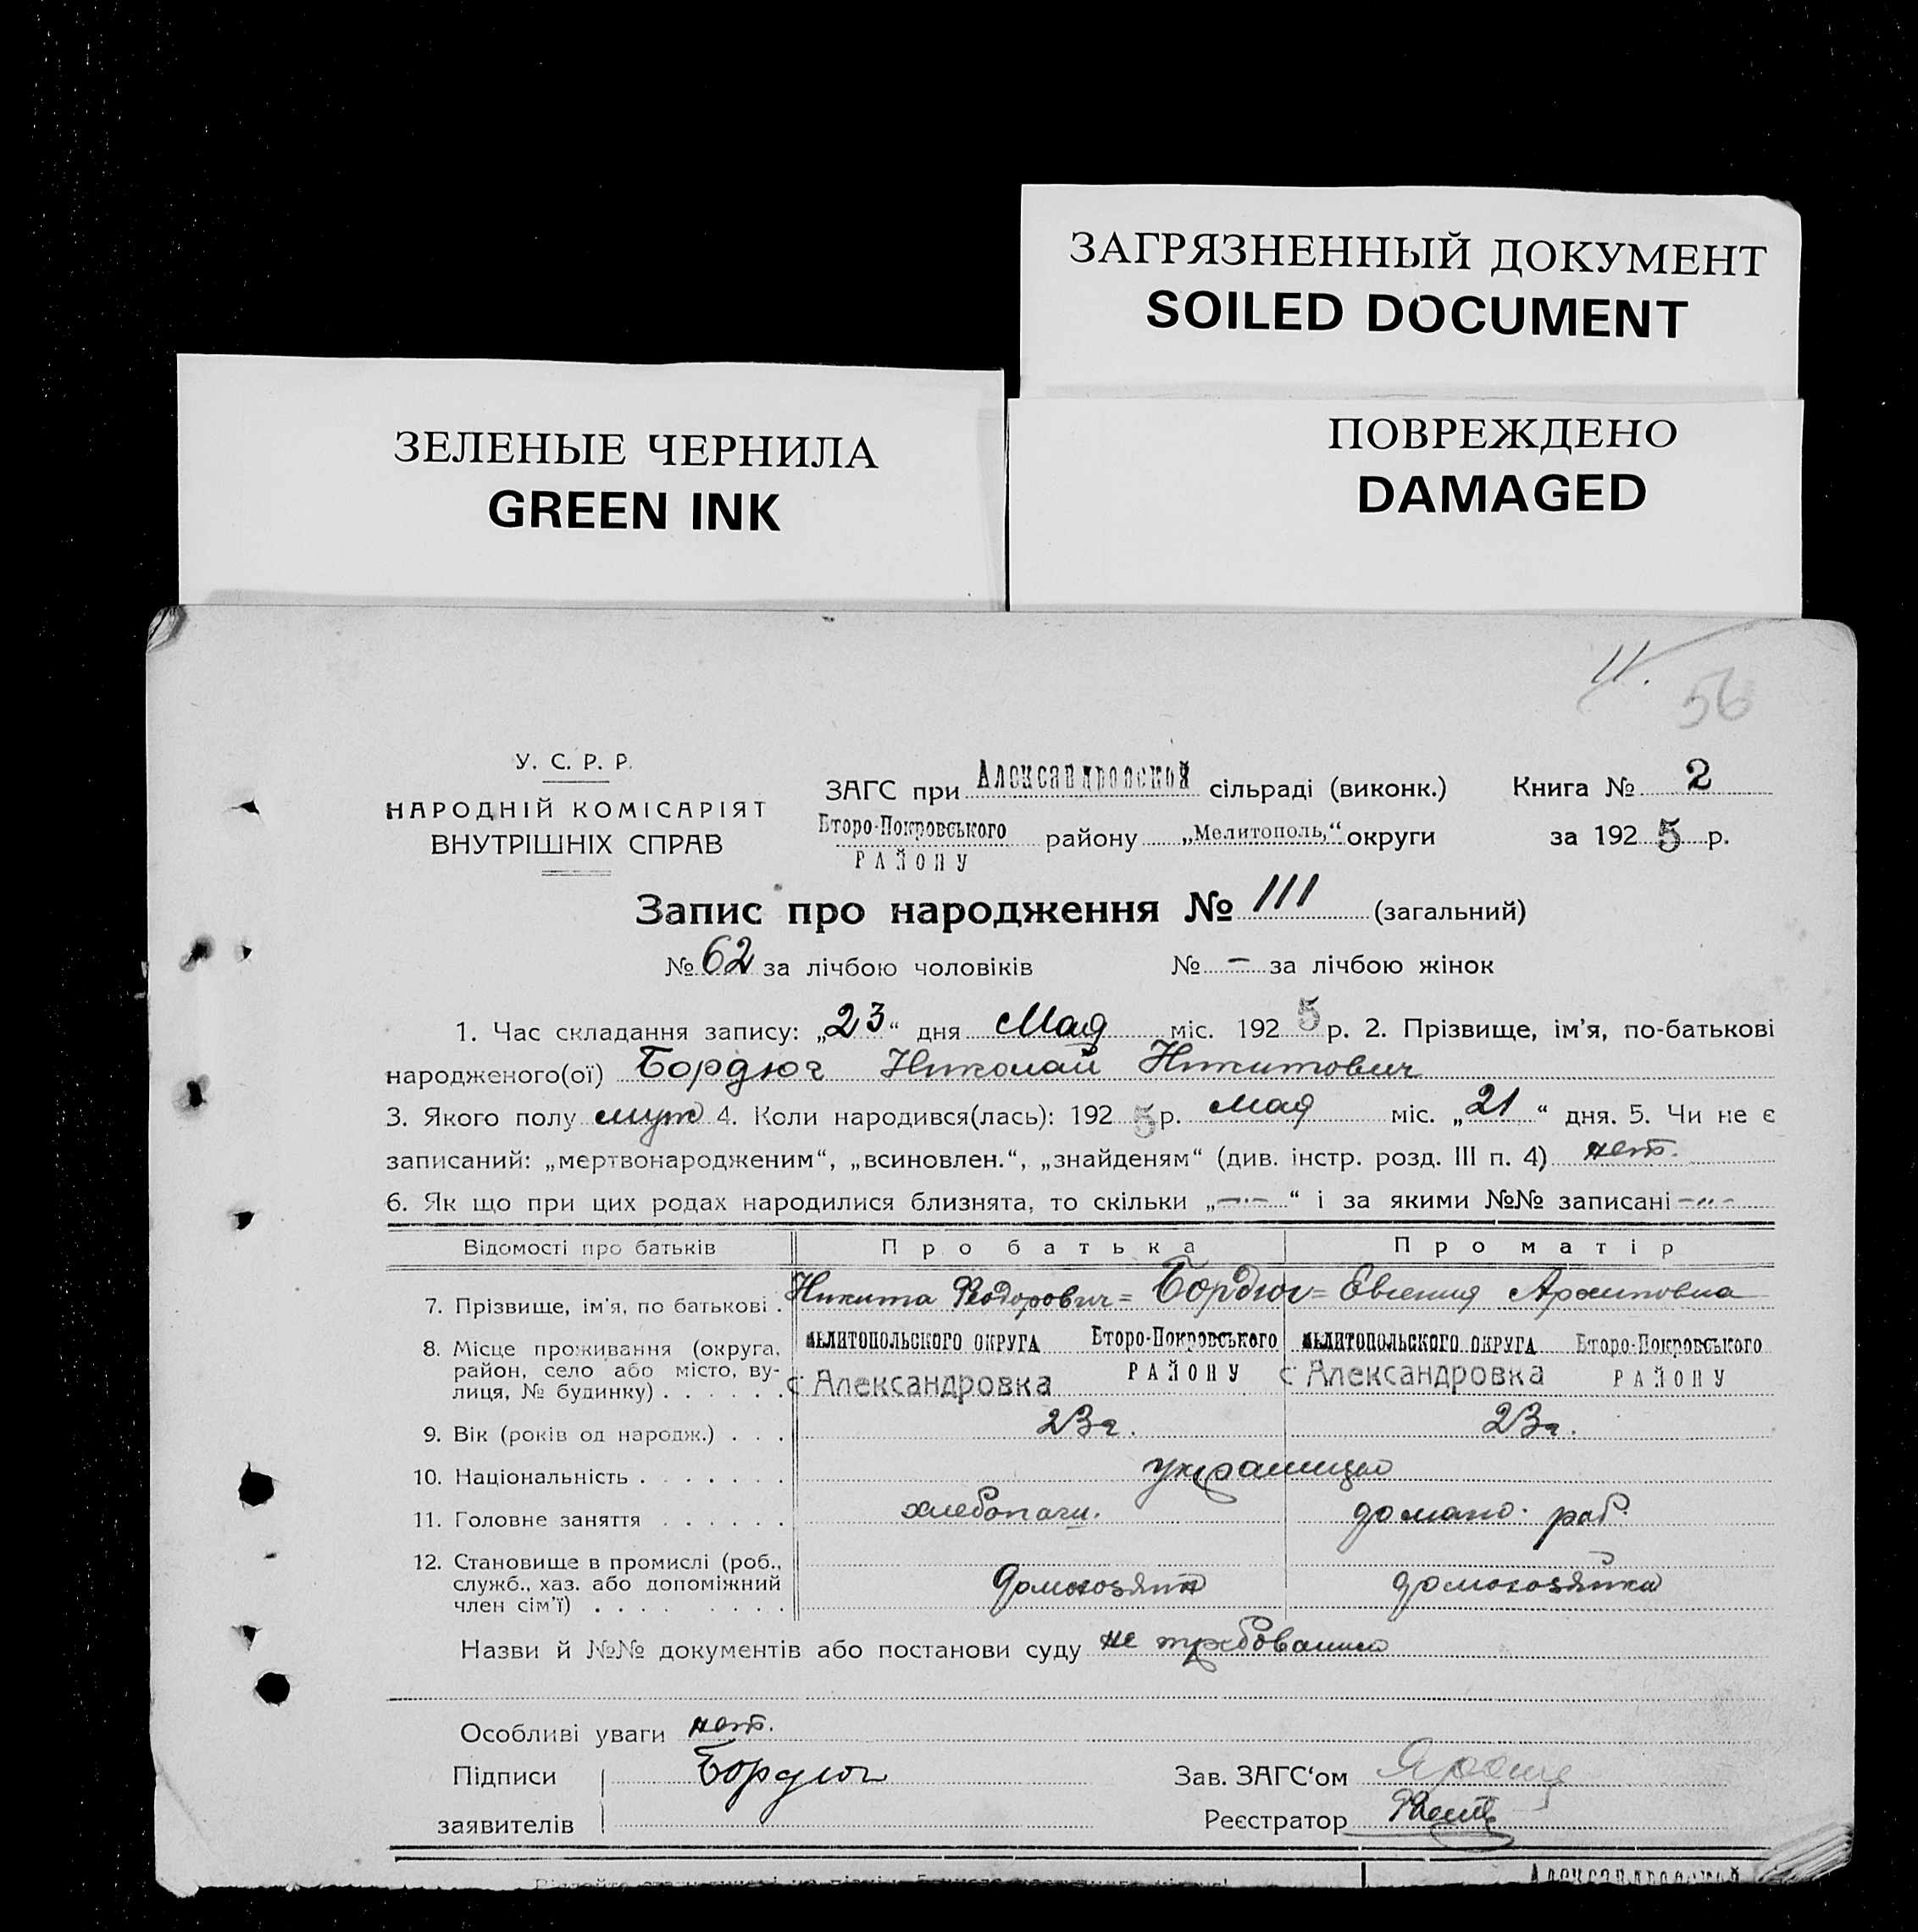 ЗАГРЯЗНЕННЫЙ ДОКУМЕНТ
SOILED DOCUMENT
ЗЕЛЕНЫЕ ЧЕРНИЛА
GREEN INK
ПОВРЕЖДЕНО
DAMAGED
11.
56
У. С. Р. Р.
НАРОДНІЙ КОМІСАРІЯТ
ВНУТРІШНІХ СПРАВ
ЗАГС при Александровской сільраді (виконк.) Книга № 2
Второ-Покровського району „Мелитополь,“ округи за 1925 р.
РАЙОНУ
Запис про народження № 111 (загальний)
№ 62 за лічбою чоловіків № – за лічбою жінок
1. Час складання запису: „23“ дня Мая міс. 1925 р. 2. Прізвище, ім'я, по-батькові
народженого(ої) Бордюг Николай Никитович
3. Якого полу муж 4. Коли народився(лась): 1925 р. Мая міс. „21“ дня. 5. Чи не є
записаний: „мертвонародженим“, „всиновлен.“, „знайденям“ (див. інстр. розд. III п. 4) нет.
6. Як що при цих родах народилися близнята, то скільки „—"—“ і за якими №№ записані —"—
Відомості про батьків Про батька Про матір
7. Прізвище, ім'я, по батькові . Никита Феодорович = Бордюг = Евгения Архиповна
8. Місце проживання (округа, район, село або місто, вулиця, № будинку) . . . . . .
МЕЛИТОПОЛЬСКОГО ОКРУГА Второ-Покровського РАЙОНУ с. Александровка
МЕЛИТОПОЛЬСКОГО ОКРУГА Второ-Покровського РАЙОНУ с. Александровка
9. Вік (років од народж.) . . . 23 г. 23 г.
10. Національність . . . . . . . украинцы
11. Головне заняття . . . . . . хлебопаш. домашн. раб.
12. Становище в промислі (роб., служб., хаз. або допоміжний член сім'ї) . . . . . . . . домохозяин домохозяйка
Назви й №№ документів або постанови суду не требовались
Особливі уваги нет.
Підписи Бордюг Зав. ЗАГС‘ом
заявителів Реєстратор
Александровской